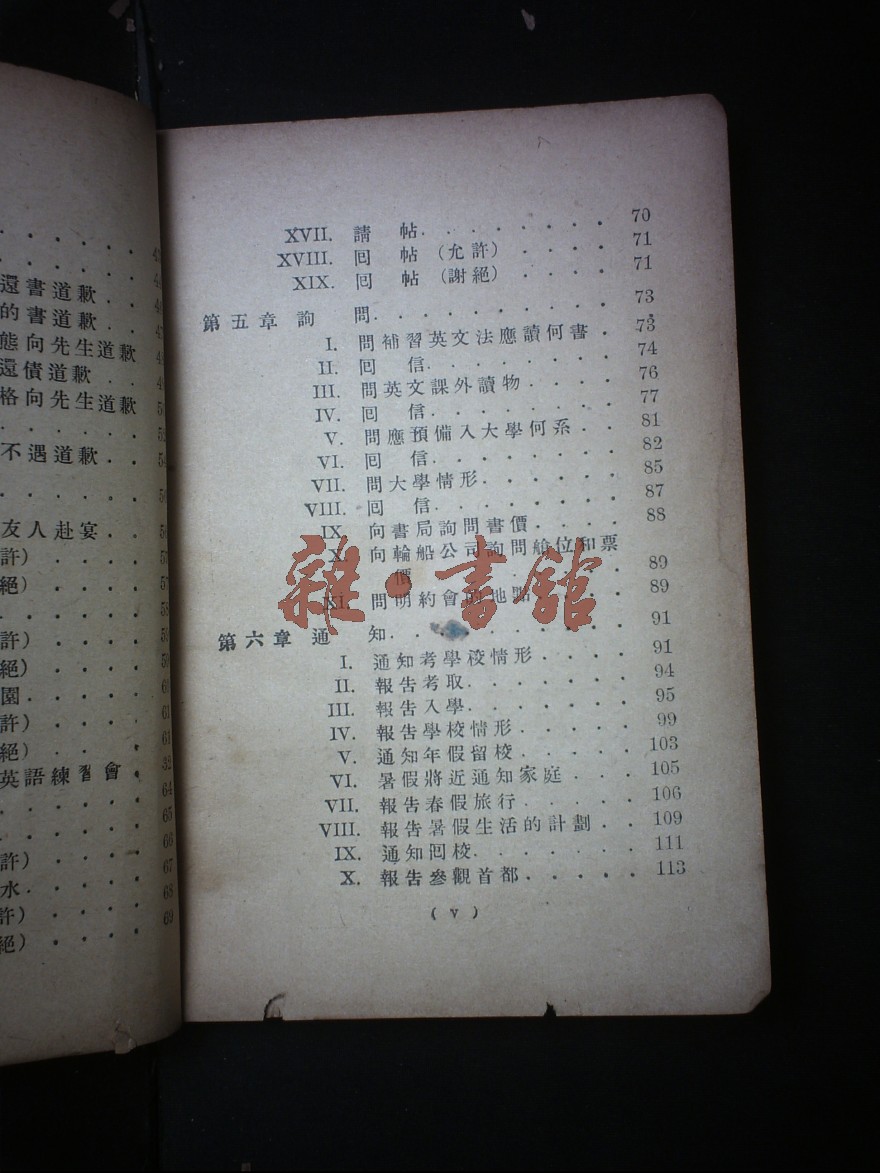 還書道歉 . .
的書道歉 . .
態向先生道歉
還債道歉 . .
格向先生道歉
不遇道歉 . .
友人赴宴 . .
許) . . . .
絕) . . . .
許) . . . .
絕) . . . . 59
園 . . . . 60
許) . . . . 61
絕) . . . . 61
英語練習會 .
64
65
66
許) . . . . 67
水 . . . . 68
許) . . . . 69
絕) . . . .
XVII. 請 帖 . . . . . . . . 70
XVIII. 囘 帖 (允許) . . . . . 71
XIX. 囘 帖 (謝絕) . . . . . 71
第五章 詢 問 . . . . . . . . . . 73
I. 問補習英文法應讀何書 . . 73
II. 囘 信 . . . . . . . . 74
III. 問英文課外讀物 . . . . . 76
IV. 囘 信 . . . . . . . . 77
V. 問應預備入大學何系 . . . 81
VI. 囘 信 . . . . . . . . 82
VII. 問大學情形 . . . . . . . 85
VIII. 囘 信 . . . . . . . . 87
IX. 向書局詢問書價 . . . . . 88
X. 向輪船公司詢問艙位和票
價 . . . . . . . . 89
XI. 問明約會的地點 . . . . 89
第六章 通 知 . . . . . . . . . . 91
I. 通知考學校情形 . . . . . 91
II. 報告考取 . . . . . . . . 94
III. 報告入學 . . . . . . . . 95
IV. 報告學校情形 . . . . . . 99
V. 通知年假留校 . . . . . . 103
VI. 暑假將近通知家庭 . . . . 105
VII. 報告春假旅行 . . . . . . 106
VIII. 報告暑假生活的計劃 . . 109
IX. 通知囘校 . . . . . . . . 111
X. 報告參觀首都 . . . . . 113
( v )
雜·書館